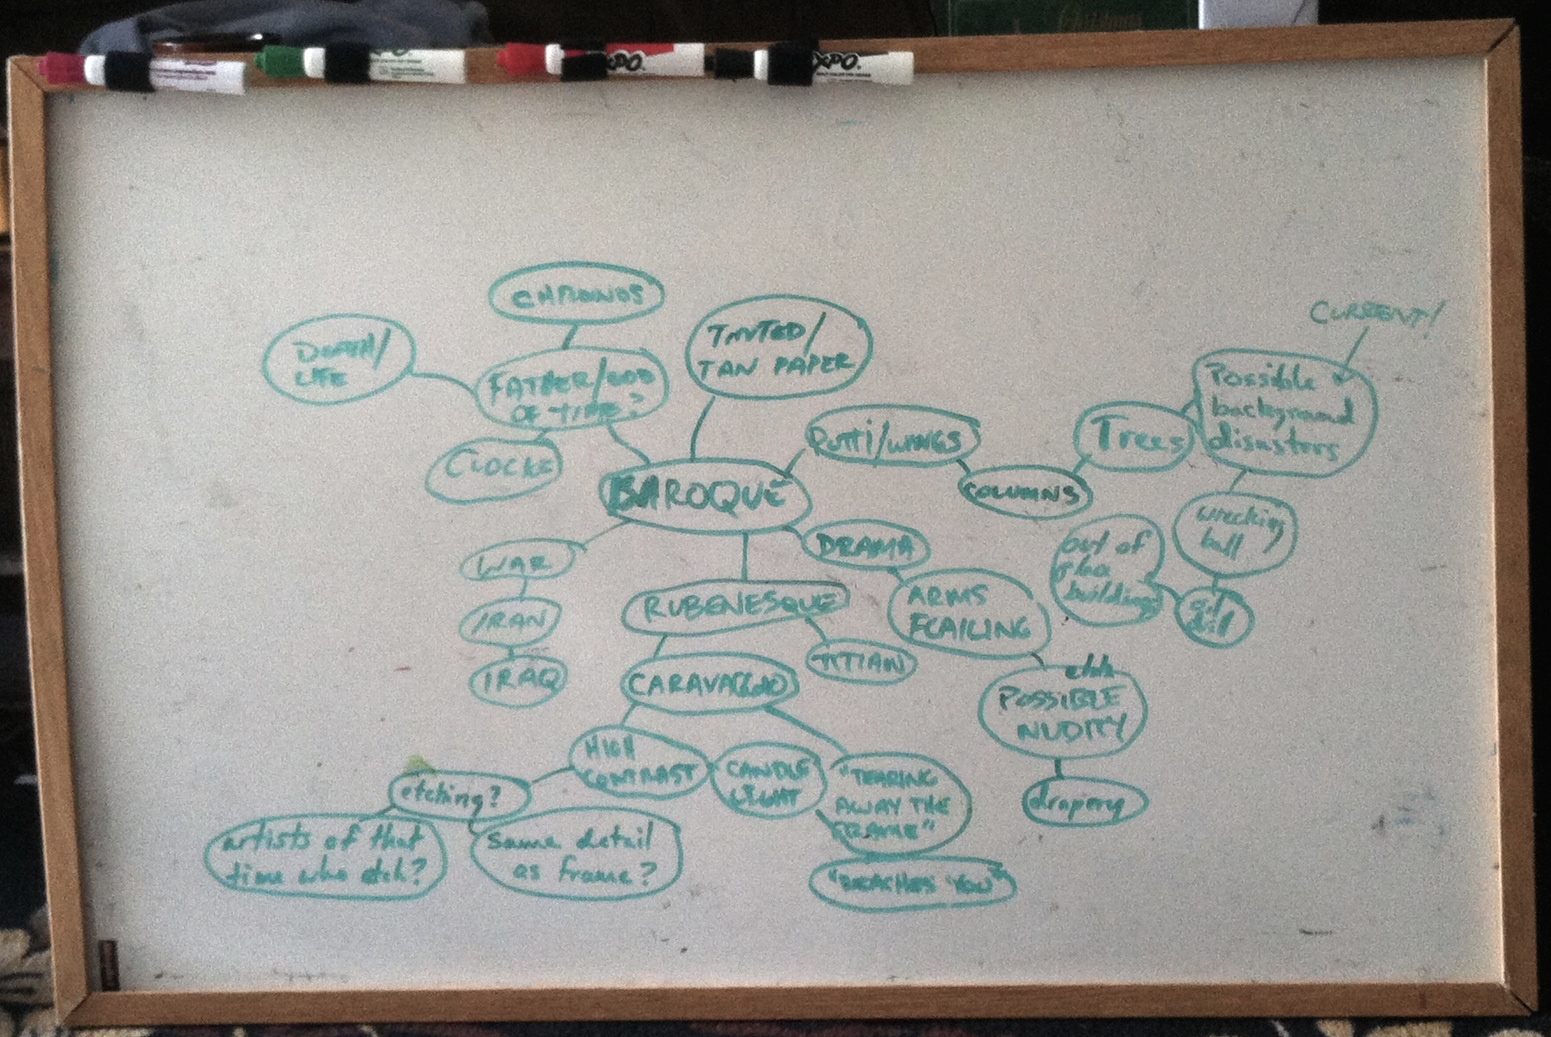 EXPO
EXPO
EXPO
CHRONOS
DEATH/
LIFE
FATHER/GOD
OF TIME?
CLOCKS
TINTED/
TAN PAPER
PUTTI/WINGS
COLUMNS
Trees
CURRENT/
Possible
background
disasters
wrecking
ball
oil
out of
buildings
BAROQUE
WAR
IRAN
IRAQ
DRAMA
ARMS
FLAILING
POSSIBLE
NUDITY
drapery
RUBENESQUE
TITIAN
CARAVAGGIO
HIGH
CONTRAST
CANDLE
LIGHT
"TEARING
AWAY THE
FRAME"
"REACHES YOU"
etching?
artists of that
time who etch?
Same detail
as frame?